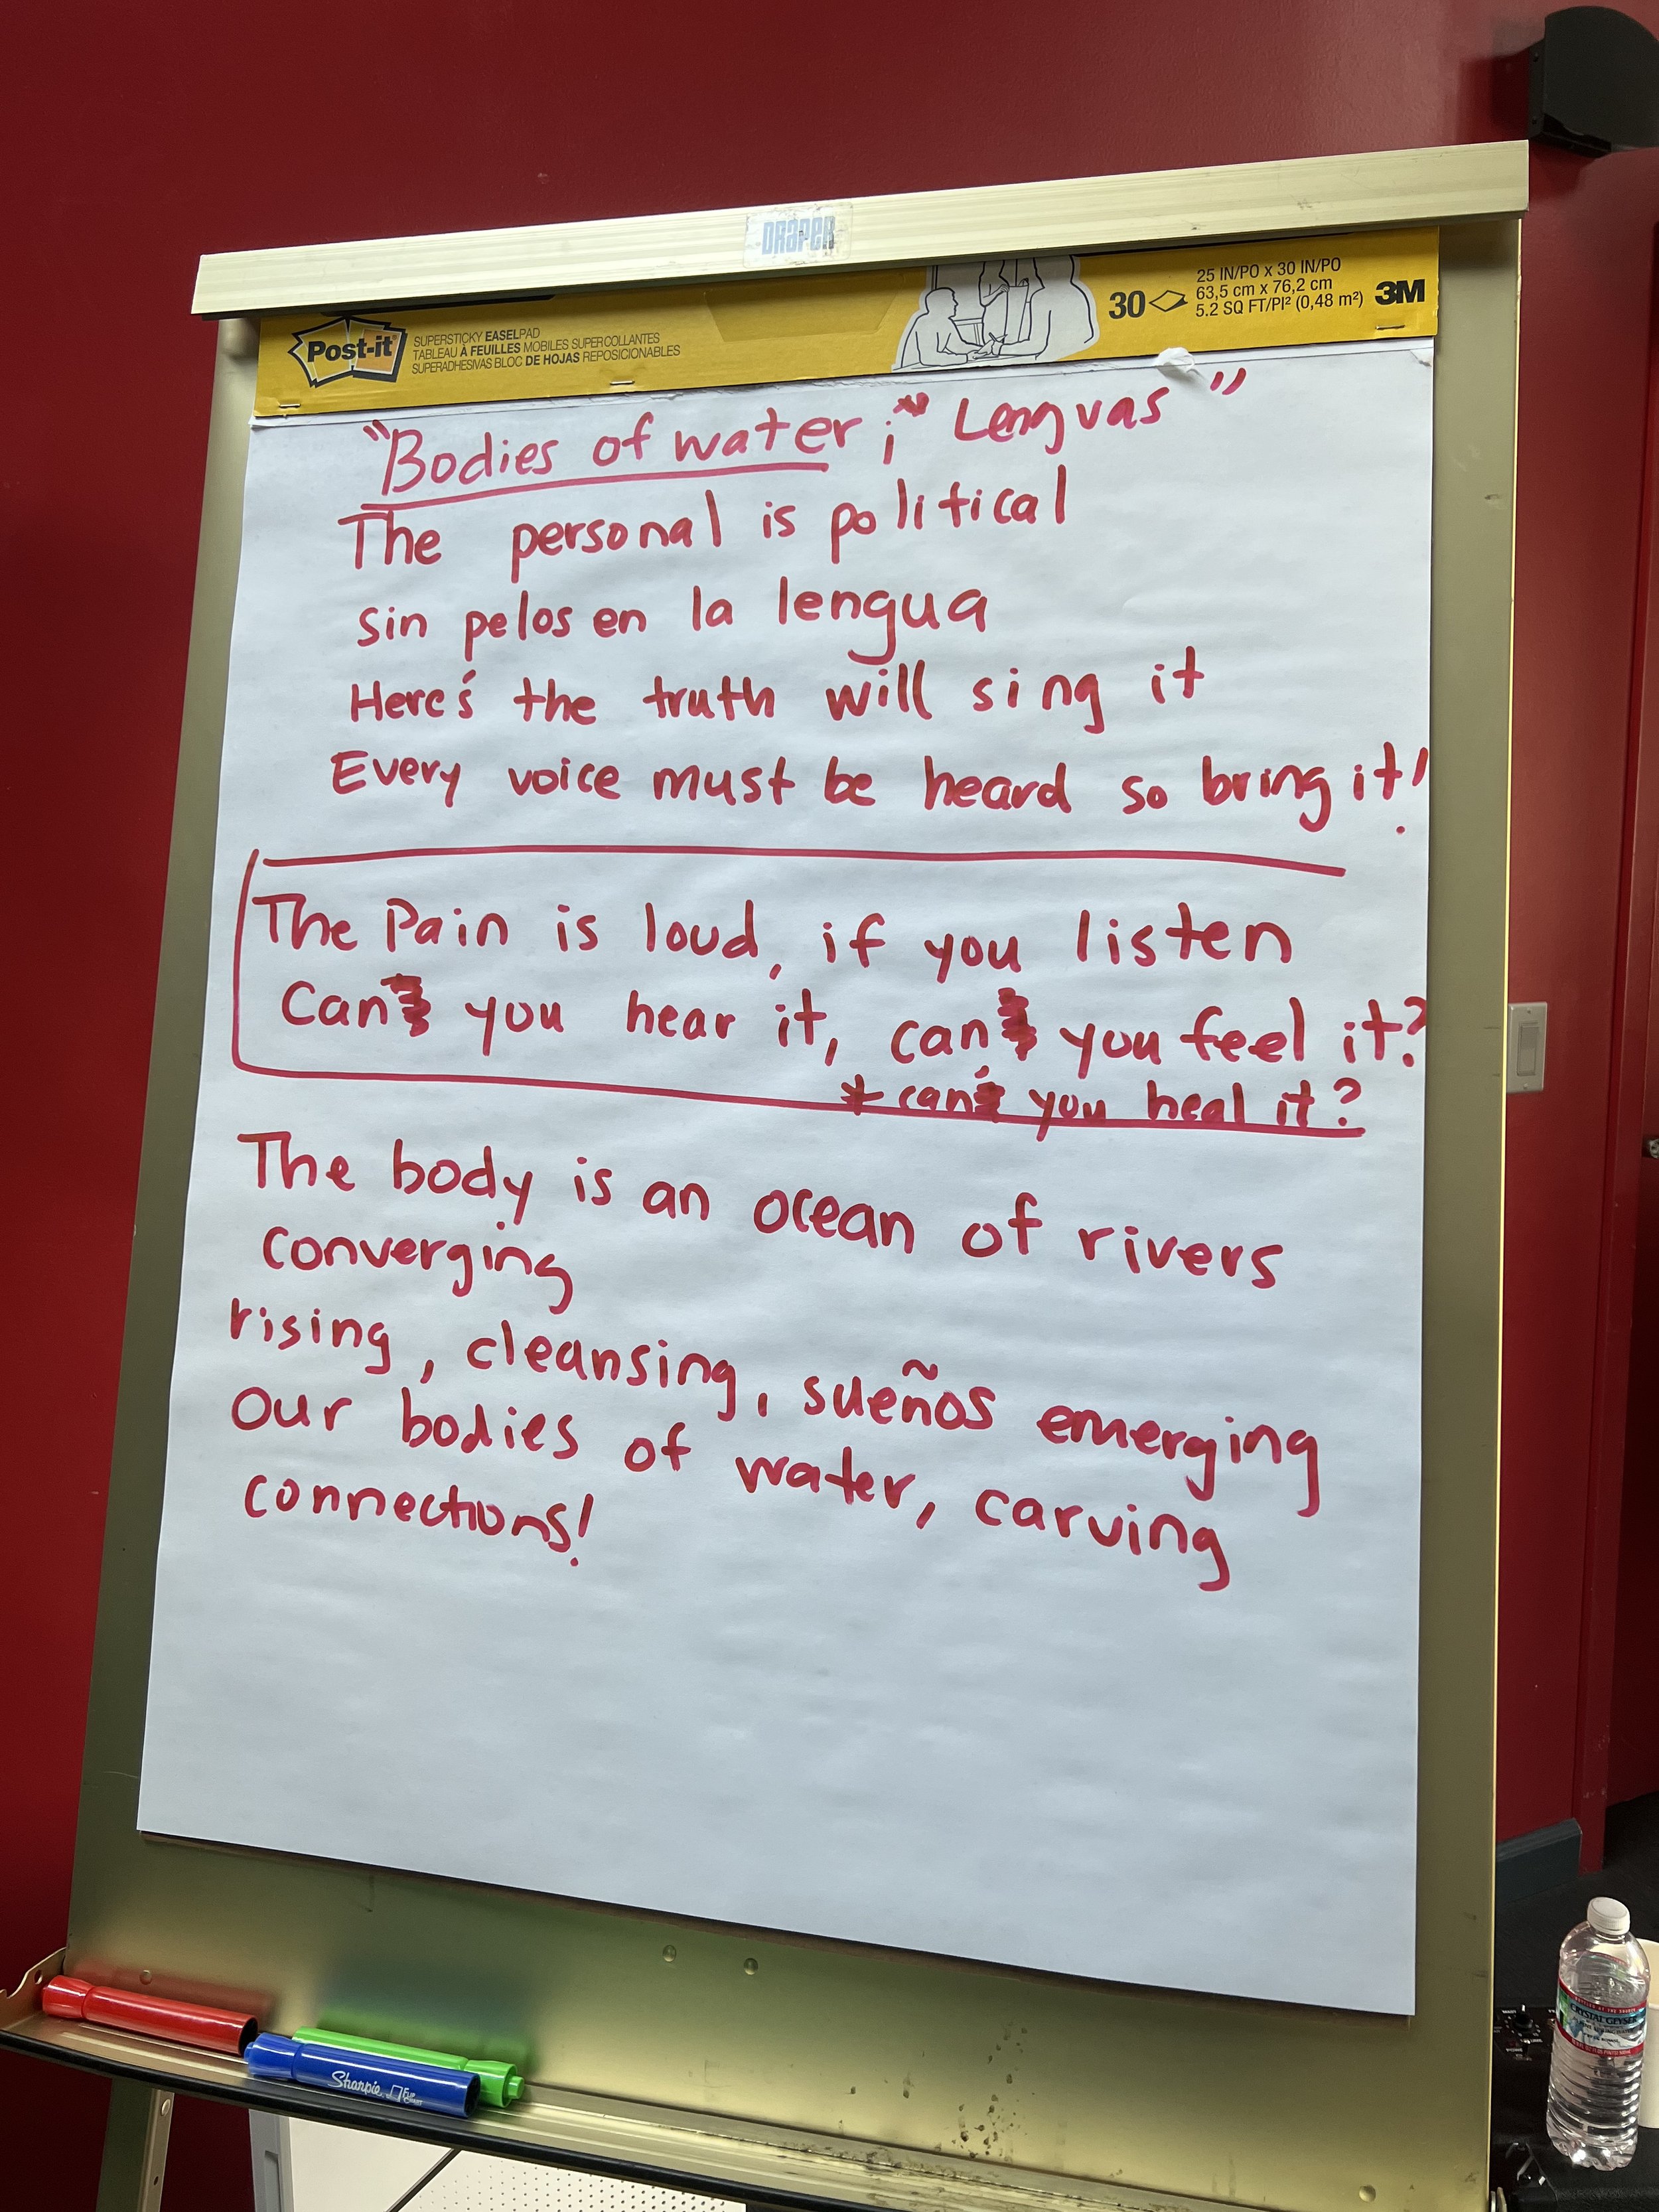 DRAPER
Post-it
SUPERSTICKY EASELPAD
TABLEAU À FEUILLES MOBILES SUPERCOLLANTES
SUPERADHESIVAS BLOC DE HOJAS REPOSICIONABLES
30
25 IN/PO x 30 IN/PO
63,5 cm x 76,2 cm
5.2 SQ FT/PI² (0,48 m²)
3M
"Bodies of water; Lenguas"
The personal is political
sin pelos en la lengua
Here's the truth will sing it
Every voice must be heard so bring it!
The Pain is loud, if you listen
Can you hear it, can you feel it?
* can you heal it?
The body is an ocean of rivers
converging
rising, cleansing, sueños emerging
our bodies of water, carving
connections!
Sharpie
CRYSTAL GEYSER